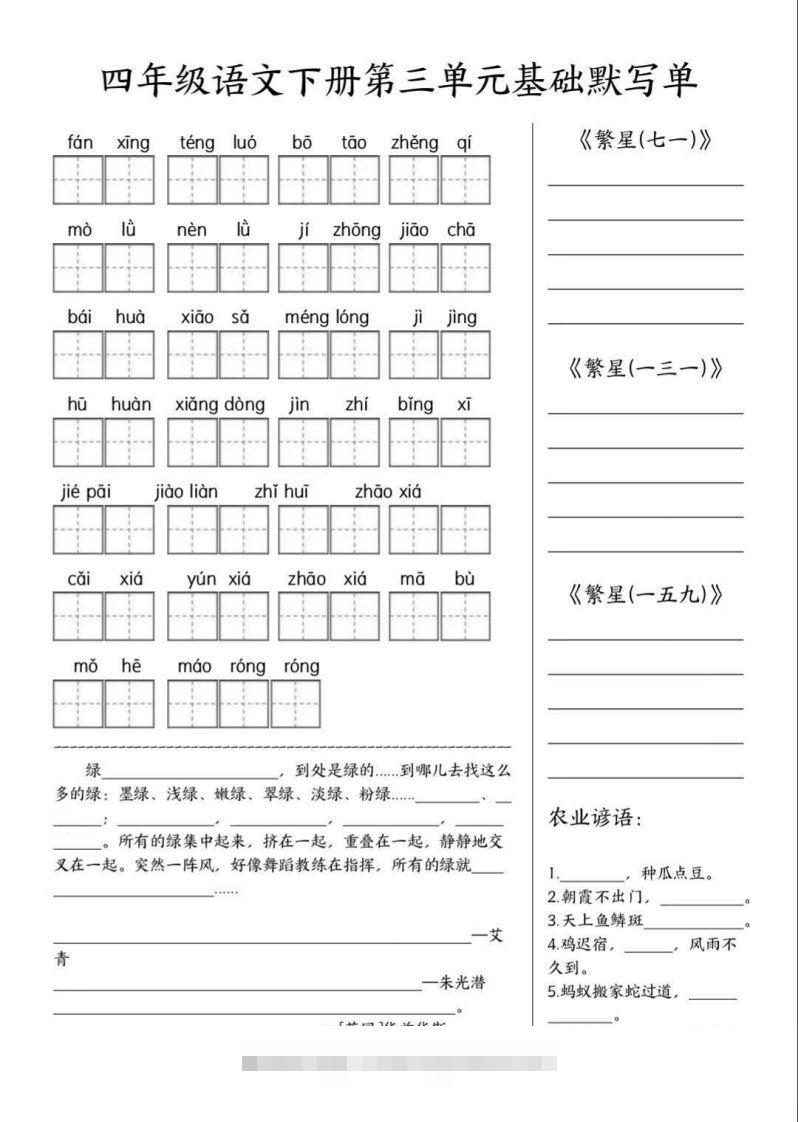 四年级语文下册第三单元基础默写单
fán xīng téng luó bō tāo zhěng qí
mò lǜ nèn lǜ jí zhōng jiāo chā
bái huà xiāo sǎ méng lóng jì jìng
hū huàn xiǎng dòng jìn zhí bǐng xī
jié pāi jiào liàn zhǐ huī zhāo xiá
cǎi xiá yún xiá zhāo xiá mā bù
mǒ hē máo róng róng
绿____________________，到处是绿的……到哪儿去找这么
多的绿：墨绿、浅绿、嫩绿、翠绿、淡绿、粉绿……________、__
______；____________，____________，____________，______
______。所有的绿集中起来，挤在一起，重叠在一起，静静地交
叉在一起。突然一阵风，好像舞蹈教练在指挥，所有的绿就____
____________________……
________________________________________—艾
青
________________________________________—朱光潜
________________________________________。
《繁星(七一)》
《繁星(一三一)》
《繁星(一五九)》
农业谚语：
1.________，种瓜点豆。
2.朝霞不出门，__________。
3.天上鱼鳞斑____________。
4.鸡迟宿，______，风雨不
久到。
5.蚂蚁搬家蛇过道，______
________。